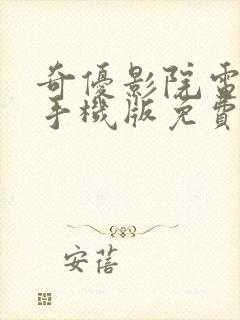 奇優影院電
手機版免費
安蓓